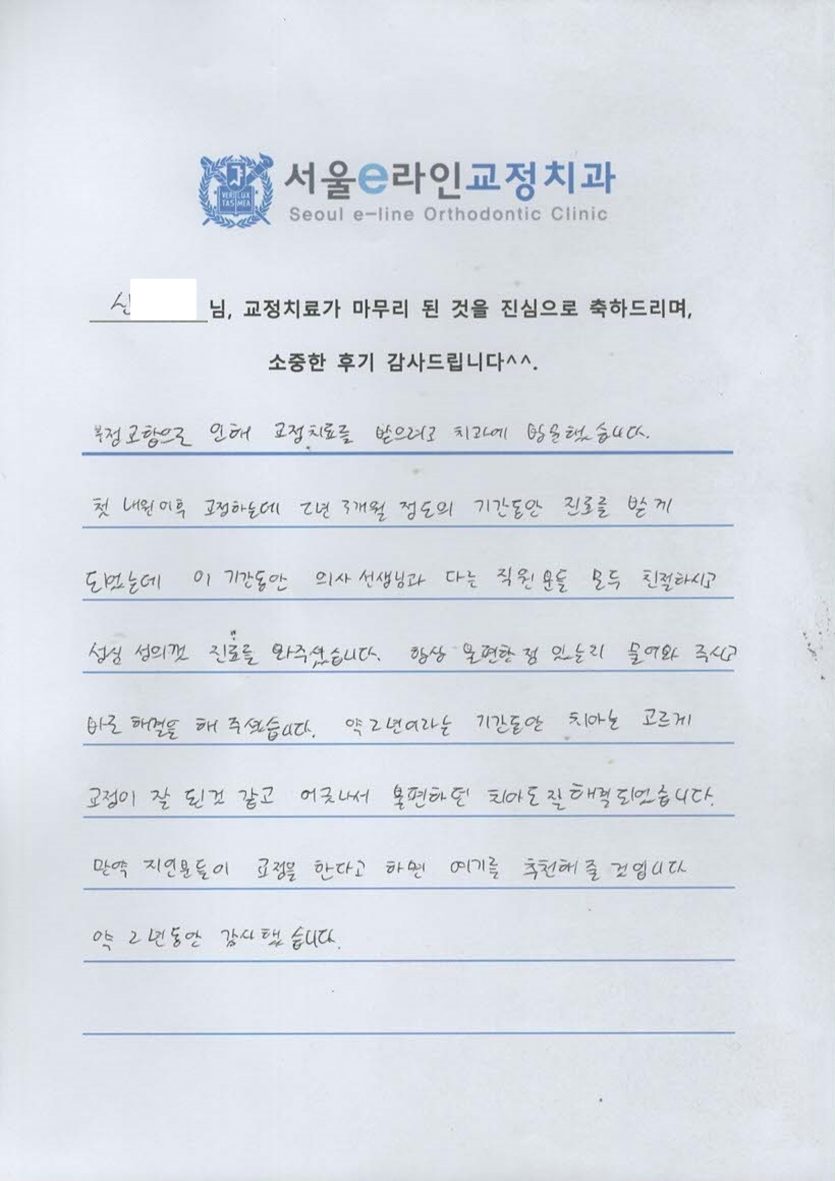 VERI LUX
TAS MEA
서울e라인교정치과
Seoul e-line Orthodontic Clinic
신 님, 교정치료가 마무리 된 것을 진심으로 축하드리며,
소중한 후기 감사드립니다^^.
부정교합으로 인해 교정치료를 받으려고 치과에 방문했습니다.
첫 내원이후 교정하는데 2년 3개월 정도의 기간동안 진료를 받게
되었는데 이 기간동안 의사 선생님과 다른 직원분들 모두 친절하시고
성심 성의껏 진료를 봐주셨습니다. 항상 불편한 점 있는지 물어봐 주시고
바로 해결을 해 주셨습니다. 약 2년이라는 기간동안 치아는 고르게
교정이 잘 된것 같고 어긋나서 불편하던 치아도 잘 해결되었습니다.
만약 지인분들이 교정을 한다고 하면 여기를 추천해 줄 것입니다
약 2년동안 감사했습니다.